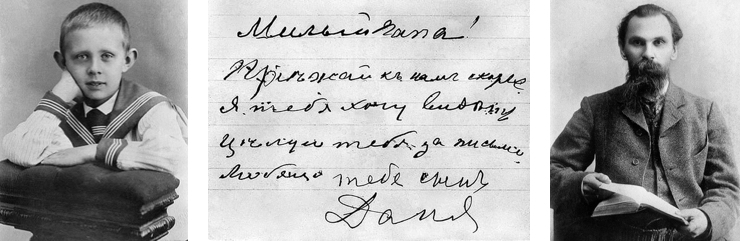 Милый папа!
Прiѣжай къ намъ скорѣе
я тебя хочу видѣть
цѣлую тебя за письмо
Любящiй тебя сынъ
Даня